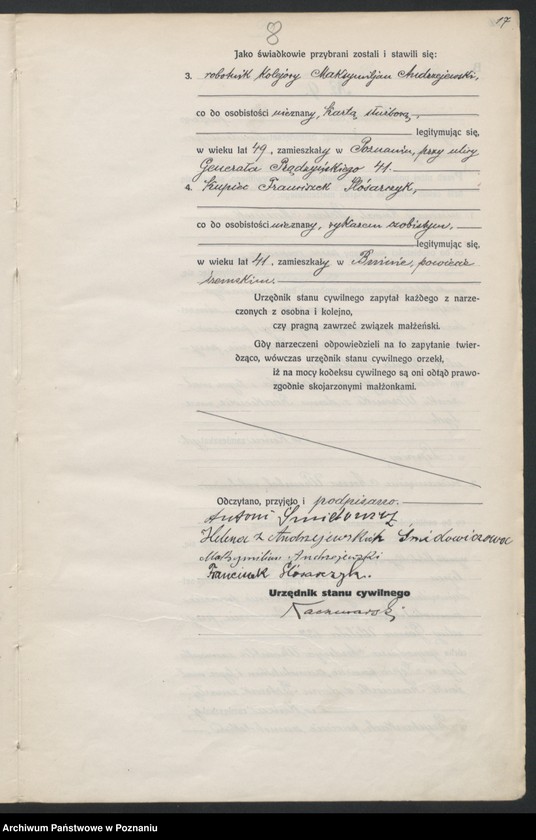 8
17
Jako świadkowie przybrani zostali i stawili się:
3. robotnik kolejowy Maksymiljan Andrzejewski,
co do osobistości nieznany, kartą służbową,
legitymując się,
w wieku lat 49, zamieszkały w Poznaniu, przy ulicy
Generała Prądzyńskiego 41.
4. kupiec Franciszek Ślósarczyk,
co do osobistości nieznany, wykazem osobistym,
legitymując się,
w wieku lat 41, zamieszkały w Bninie, powiecie
śremskim.
Urzędnik stanu cywilnego zapytał każdego z narze-
czonych z osobna i kolejno,
czy pragną zawrzeć związek małżeński.
Gdy narzeczeni odpowiedzieli na to zapytanie twier-
dząco, wówczas urzędnik stanu cywilnego orzekł,
iż na mocy kodeksu cywilnego są oni odtąd prawo-
zgodnie skojarzonymi małżonkami.
Odczytano, przyjęto i podpisano.
Antoni
Helena z Andrzejewskich Śmidowiczowa
Maksymilian Andrzejewski
Franciszek Ślósarczyk.
Urzędnik stanu cywilnego
Kaczmarski
Archiwum Państwowe w Poznaniu